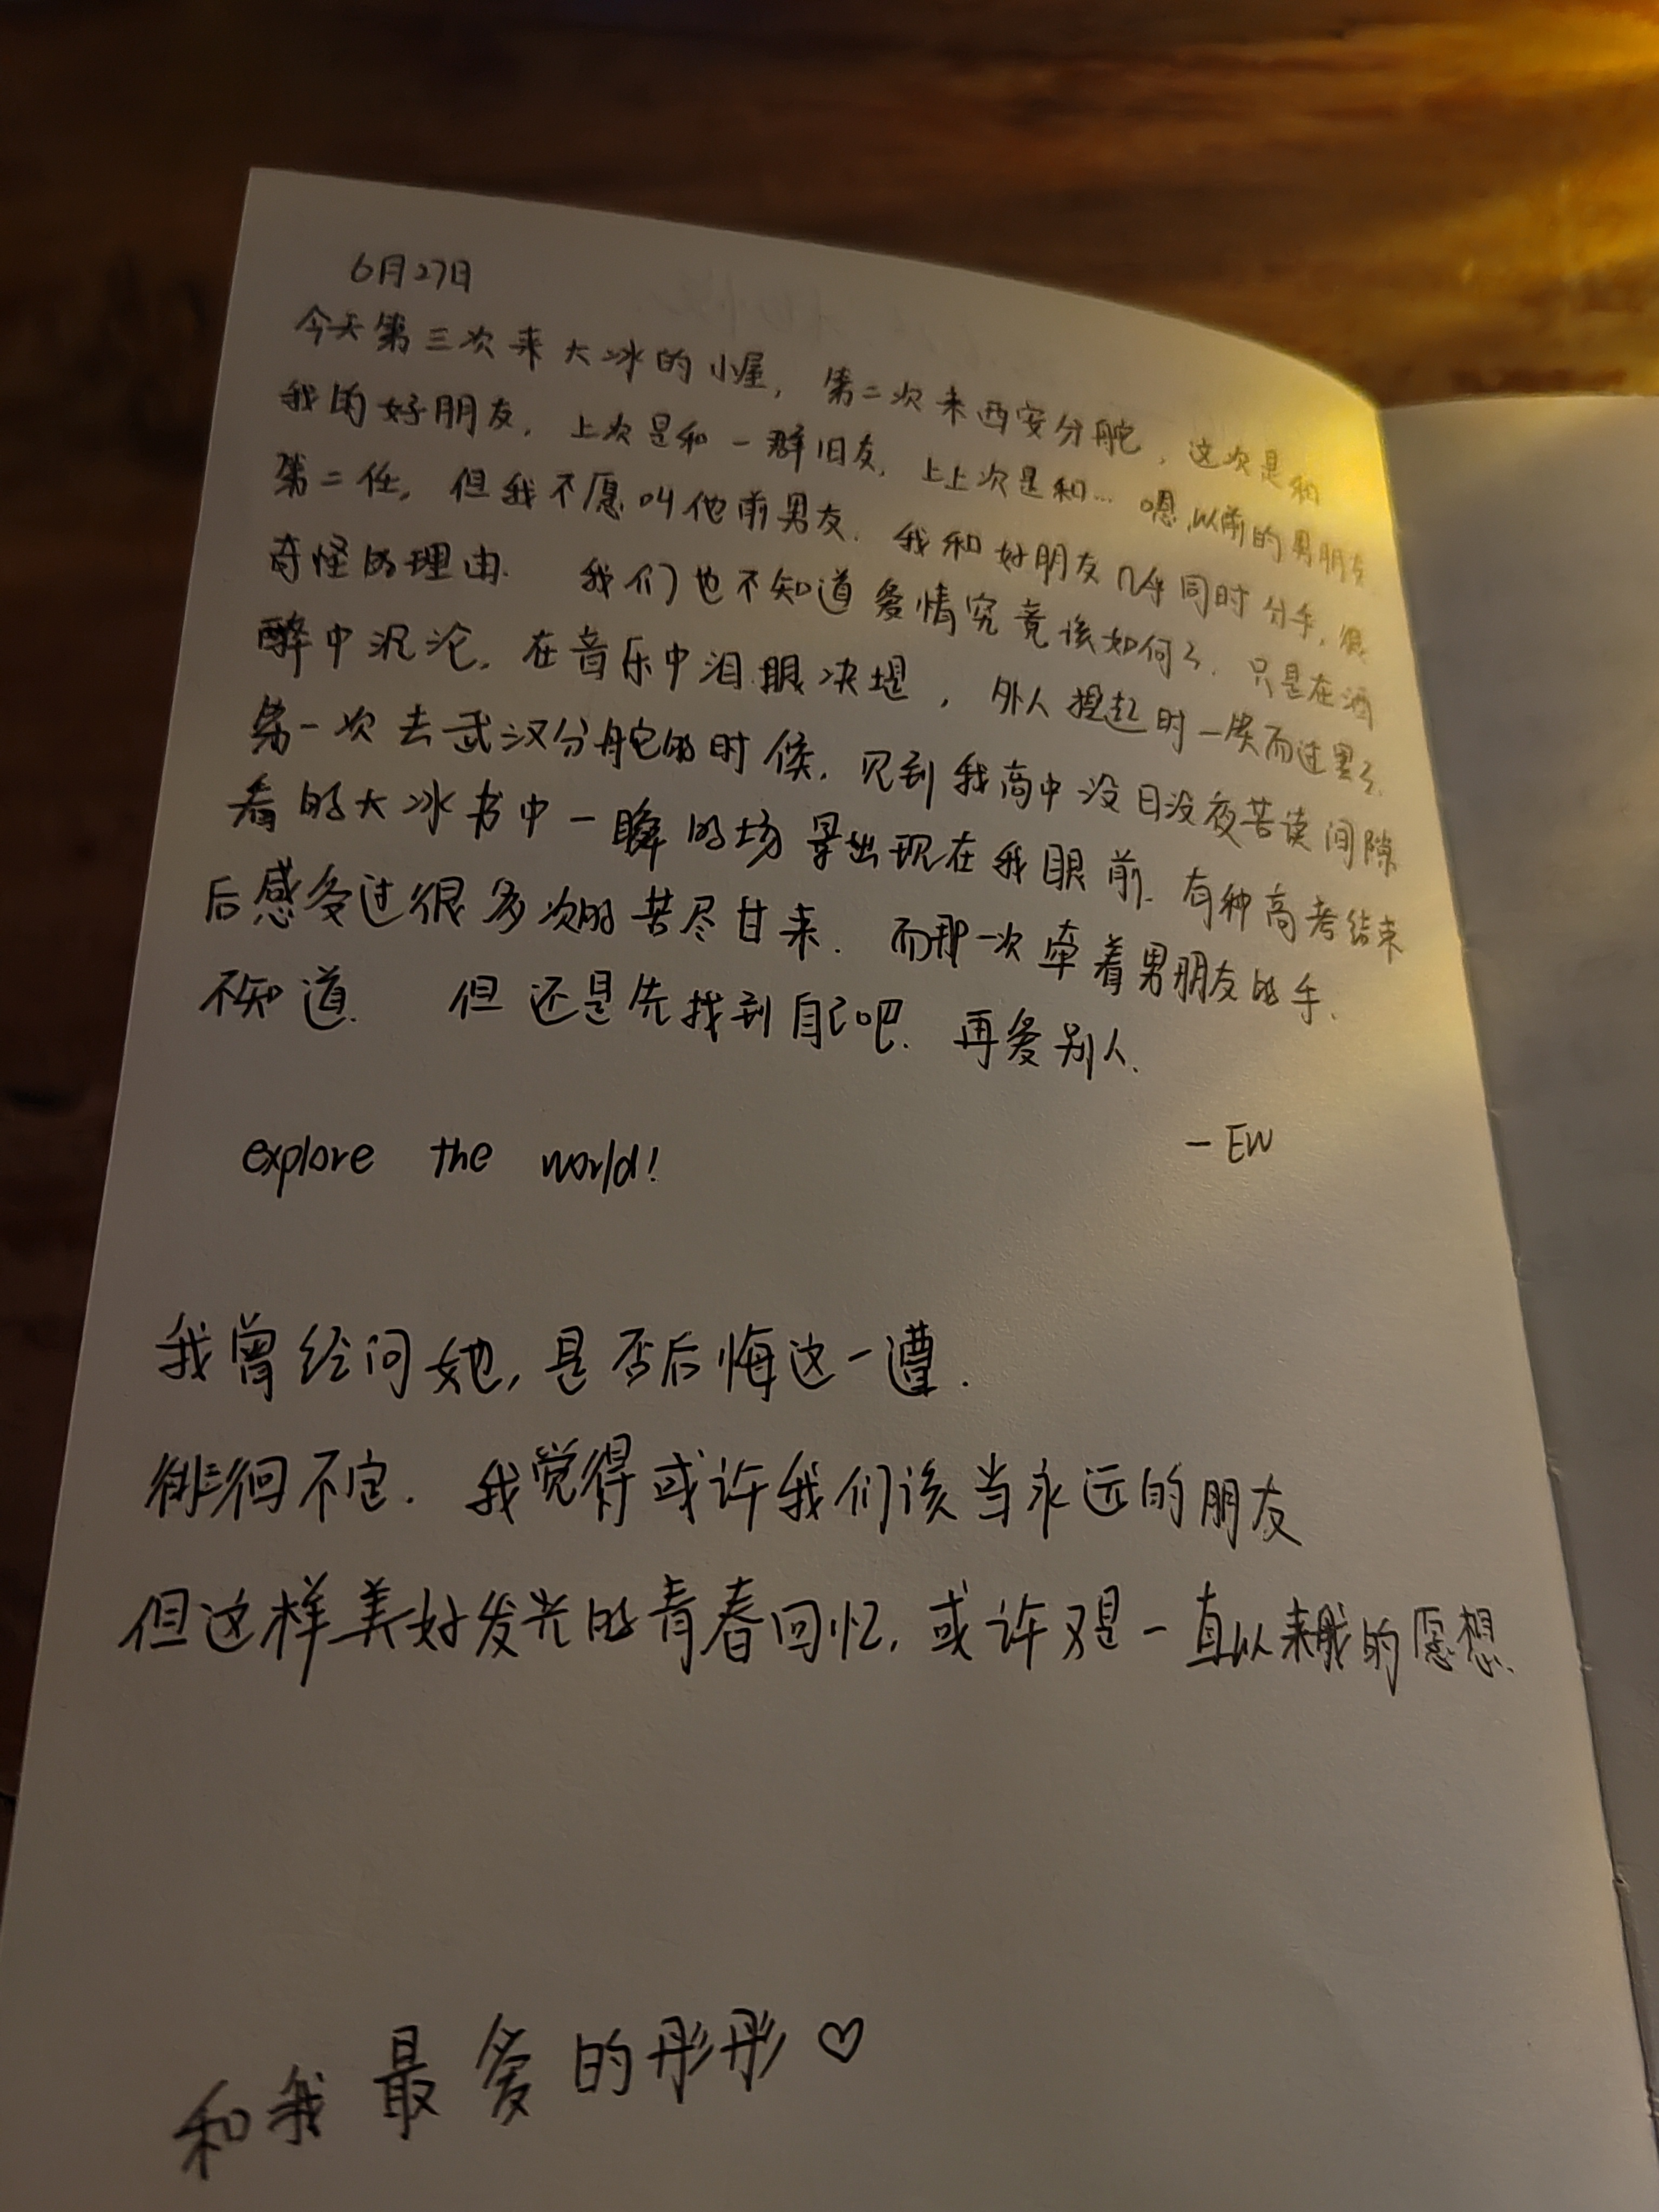 6月27日
今天第三次来大冰的小屋，第二次来西安分舵，这次是和
我的好朋友，上次是和一群旧友，上上次是和…嗯，以前的男朋友
第二任，但我不愿叫他前男友．我和好朋友几乎同时分手，很
奇怪的理由．我们也不知道爱情究竟该如何了．只是在酒
醉中沉沦，在音乐中泪眼决堤，外人提起时一笑而过罢了．
第一次去武汉分舵的时候，见到我高中没日没夜苦读间隙
看的大冰书中一瞬的场景出现在我眼前．有种高考结束
后感受过很多次的苦尽甘来．而那一次牵着男朋友的手．
不知道．但还是先找到自己吧．再爱别人．
explore the world!
—EW
我曾经问她，是否后悔这一遭．
徘徊不定．我觉得或许我们该当永远的朋友
但这样美好发光的青春回忆，或许又是一直以来我的愿想．
和我最爱的彤彤♡